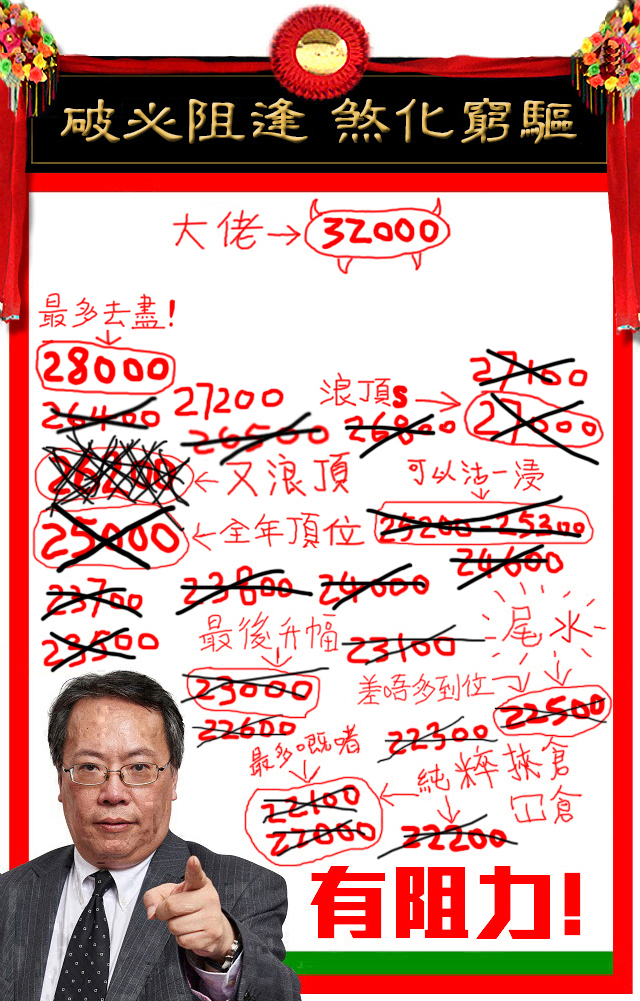 破必阻逢 煞化窮驅
大佬→32000
最多去盡!
28000
27100
26400
27200
浪頂s→27000
26500
26800
26200←又浪頂
可以沽一浸
25000←全年頂位
25200-25300
24600
23700
23800
24000
23500
最後升幅
23100
尾水
23000
差唔多到位
22500
22600
22300
最多嘅啫
22100
22000
純粹挾倉
冚倉
22200
有阻力!